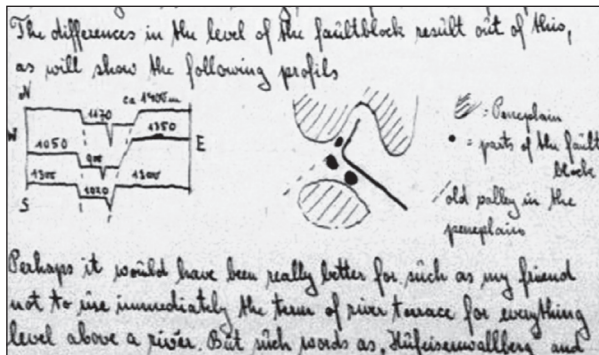 The differences in the level of the faultblock result out of this,
as will show the following profils
N
1170 ca 1400m
W 1050 900 1350 E
1300 1020 1300
S
= Peneplain
= parts of the fault
blocke
old valley in the
peneplains
Perhaps it would have been really better for such as my friend
not to use immediately the term of river terrace for everything
level above a river. But such words as „Hufeisenwallberg" and